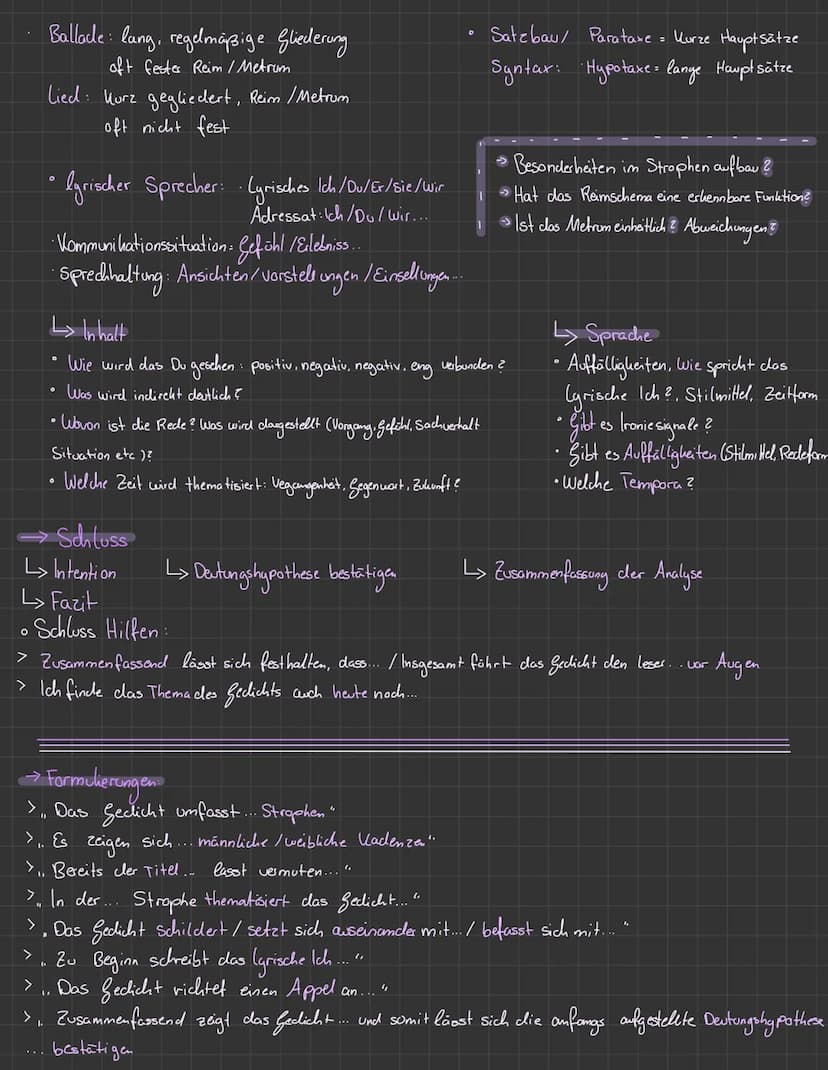 · Ballade: lang, regelmäßige Gliederung
oft festes Reim/Metrum
Lied: Kurz gegliedert, Reim/Metrum
oft nicht fest
• Satzbau/ Parataxe = Kurze Hauptsätze
Syntax: · Hypotaxe = lange Hauptsätze
→ Besonderheiten im Strophenaufbau?
→ Hat das Reimschema eine erkennbare Funktion?
→ Ist das Metrum einheitlich? Abweichungen?
• lyrischer Sprecher: · Lyrisches Ich/Du/Er/sie/Wir
Adressat: Ich/Du/Wir...
· Kommunikationssituation: Gefühl/Erlebniss...
· Sprechhaltung: Ansichten/Vorstellungen/Einsellungen...
↳ Inhalt
• Wie wird das Du gesehen: positiv, negativ, negativ, eng verbunden?
• Was wird indirekt deutlich?
• Wovon ist die Rede? Was wird dargestellt (Vorgang, Gefühl, Sachverhalt
Situation etc)?
• Welche Zeit wird thematisiert: Vegangenheit, Gegenwart, Zukunft?
↳ Sprache
• Auffälligkeiten, Wie spricht das
Lyrische Ich?, Stilmittel, Zeitform
• Gibt es Ironiesignale?
· Gibt es Auffälligkeiten (Stilmittel, Redeform
• Welche Tempora?
→ Schluss
↳ Intention ↳ Deutungshypothese bestätigen ↳ Zusammenfassung der Analyse
↳ Fazit
∘ Schluss Hilfen:
> Zusammenfassend lässt sich festhalten, dass... / Insgesamt führt das Gedicht den leser... vor Augen
> Ich finde das Thema des Gedichts auch heute noch...
→ Formulierungen:
> „Das Gedicht umfasst... Strophen"
> „Es zeigen sich... männliche/weibliche Kadenzen"
> „Bereits der Titel... lässt vermuten..."
> „In der... Strophe thematisiert das Gedicht..."
> „Das Gedicht schildert / setzt sich auseinander mit.../ befasst sich mit..."
> „Zu Beginn schreibt das Lyrische Ich..."
> „Das Gedicht richtet einen Appel an..."
> „Zusammenfassend zeigt das Gedicht... und somit lässt sich die anfangs aufgestellte Deutungshypothese
... bestätigen